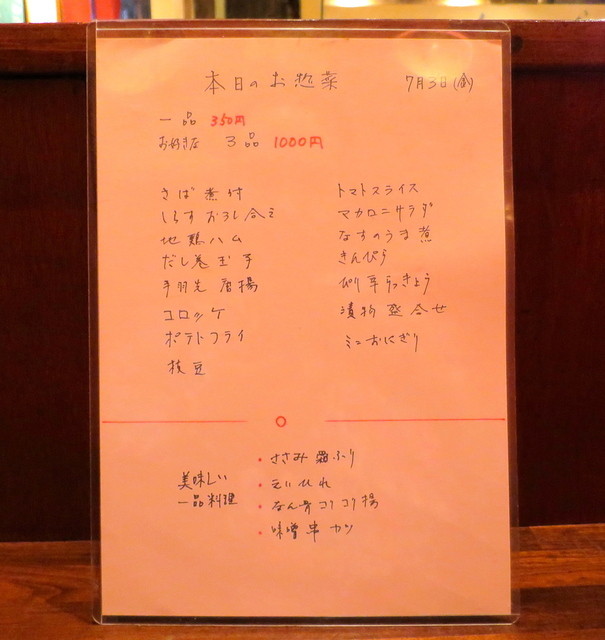 本日のお惣菜
7月3日(金)
一品 350円
お好きな 3品 1000円
さば煮付
しらすおろし合え
地鶏ハム
だし巻玉子
手羽先唐揚
コロッケ
ポテトフライ
枝豆
トマトスライス
マカロニサラダ
なすのうま煮
きんぴら
ぴり辛らっきょう
漬物盛合せ
ミニおにぎり
美味しい
一品料理
・ささみ霜ふり
・えいひれ
・なん骨コリコリ揚
・味噌串カツ